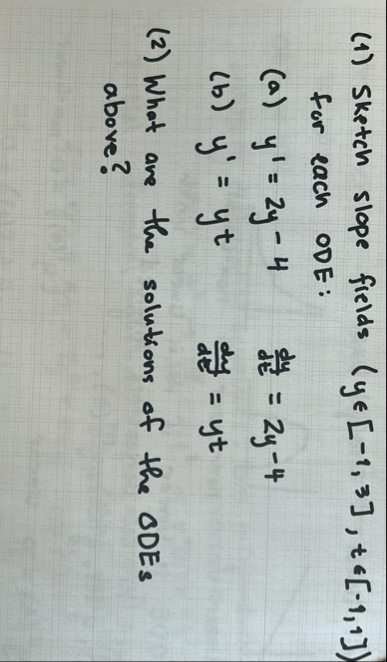 (1) Sketch slope fields (y∈[-1,3], t∈[-1,1])
for each ODE:
(a) y' = 2y - 4 dy/dt = 2y-4
(b) y' = yt dy/dt = yt
(2) What are the solutions of the ODEs
above?